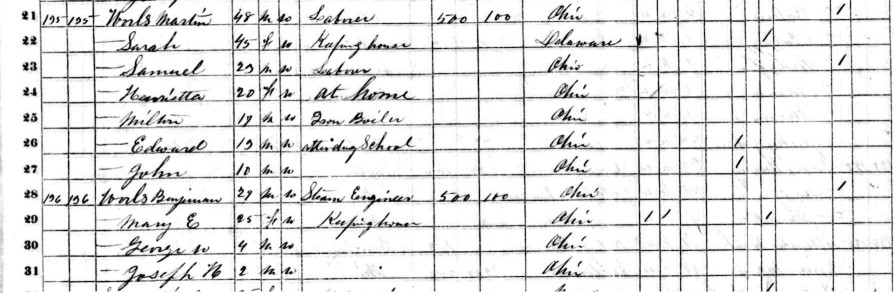 21 195 195 Worls Martin 48 M W Laborer 500 100 Ohio 1
22 — Sarah 45 F W Keeping house Delaware 1 1
23 — Samuel 23 M W Laborer Ohio 1
24 — Henrietta 20 F W at home Ohio
25 — Milton 17 M W Iron Boiler Ohio
26 — Edward 13 M W attending School Ohio 1
27 — John 10 M W Ohio 1
28 196 196 Worls Benjiman 27 M W Steam Engineer 500 100 Ohio 1
29 — Mary E 25 F W Keeping house Ohio 1 1 1
30 — George W 4 M W Ohio
31 — Joseph H 2 M W Ohio